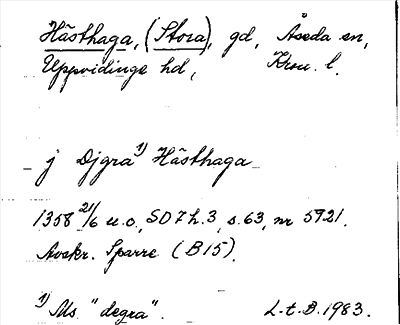 Hästhaga, (Stora), gd, Åseda sn,
Uppvidinge hd, Kron. l.
j Djgra 1) Hästhaga
1358 21/6 u.o., SD 7 h. 3, s. 63, nr 5921.
Avskr. Sparre (B15).
1) Ms. "degra". L.t.B. 1983.